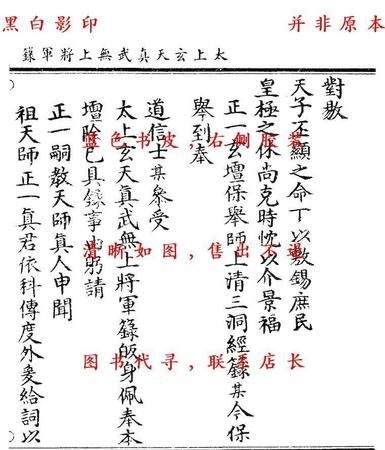 黑白影印
并非原本
太上玄天真武無上將軍籙
對敭
天子丕顯之命下以敷錫庶民
皇極之休尚克時忱以介景福
正一玄壇保舉師上清三洞經籙某今保
舉到奉
道信士某叅受
太上玄天真武無上將軍籙皈身佩奉本
壇除已具錄事由躬請
正一嗣教天師真人申聞
祖天師正一真君依科傳度外爰給詞以
蓝色书皮，右侧胶装
清晰如图，售出不退
图书代寻，联系店长